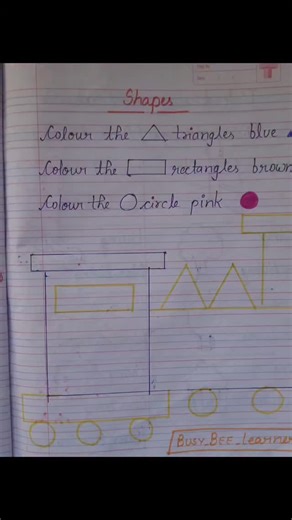 Shapes
Colour the triangles blue
Colour the rectangles brown
Colour the circle pink
BUSY_BEE_learner